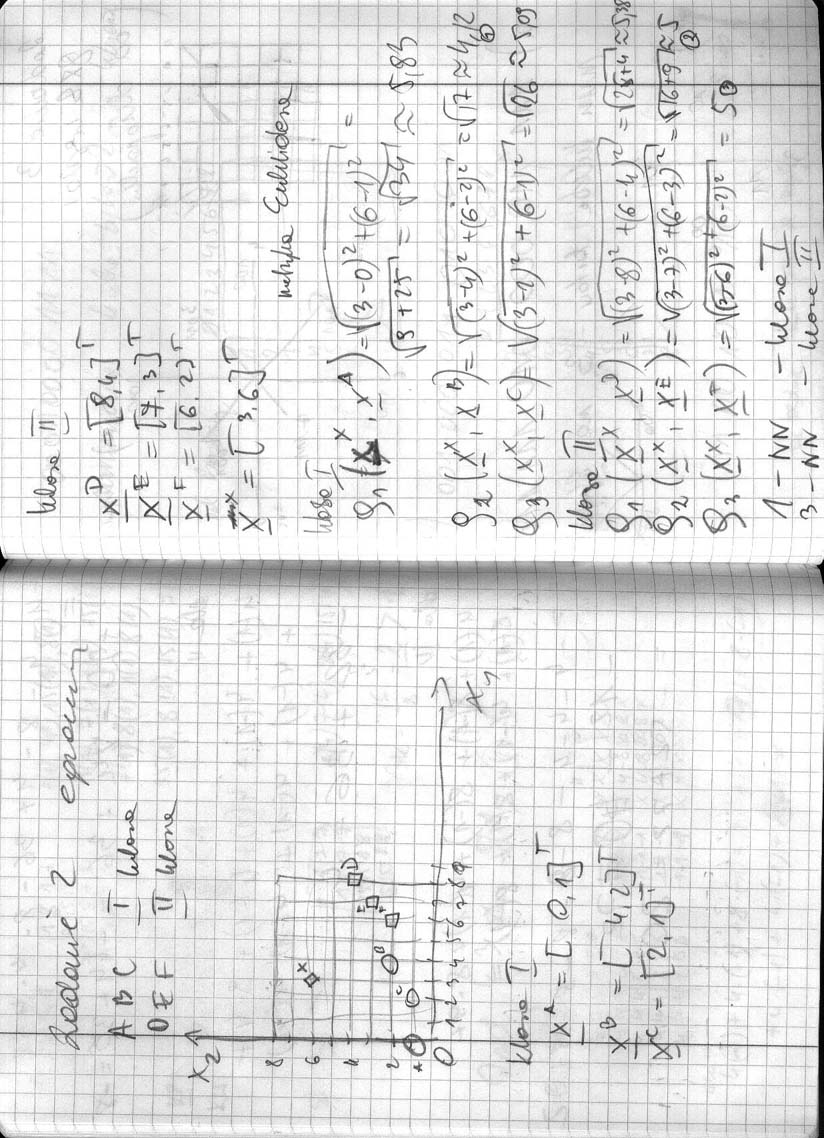 Zadanie 2
A B C I klasa
D E F II klasa
X₂
8
6
4
2
0
X
D
E
F
B
C
A
1 2 3 4 5 6 7 8 9
X₁
klasa I
X^A = [0,1]^T
X^B = [4,2]^T
X^C = [2,1]^T
klasa II
X^D = [8,4]^T
X^E = [7,3]^T
X^F = [6,2]^T
X^X = [3,6]^T
metryka Euklidesa
klasa I
ϱ₁(X^X, X^A) = √(3-0)²+(6-1)² =
√9+25 = √34 ≈ 5,83
ϱ₂(X^X, X^B) = √(3-4)²+(6-2)² = √17 ≈ 4,12 ①
ϱ₃(X^X, X^C) = √(3-2)²+(6-1)² = √26 ≈ 5,09
klasa II
ϱ₁(X^X, X^D) = √(3-8)²+(6-4)² = √25+4 ≈ 5,38
ϱ₂(X^X, X^E) = √(3-7)²+(6-3)² = √16+9 ≈ 5 ②
ϱ₃(X^X, X^F) = √(3-6)²+(6-2)² = 5 ③
1-NN - klasa I
3-NN - klasa II